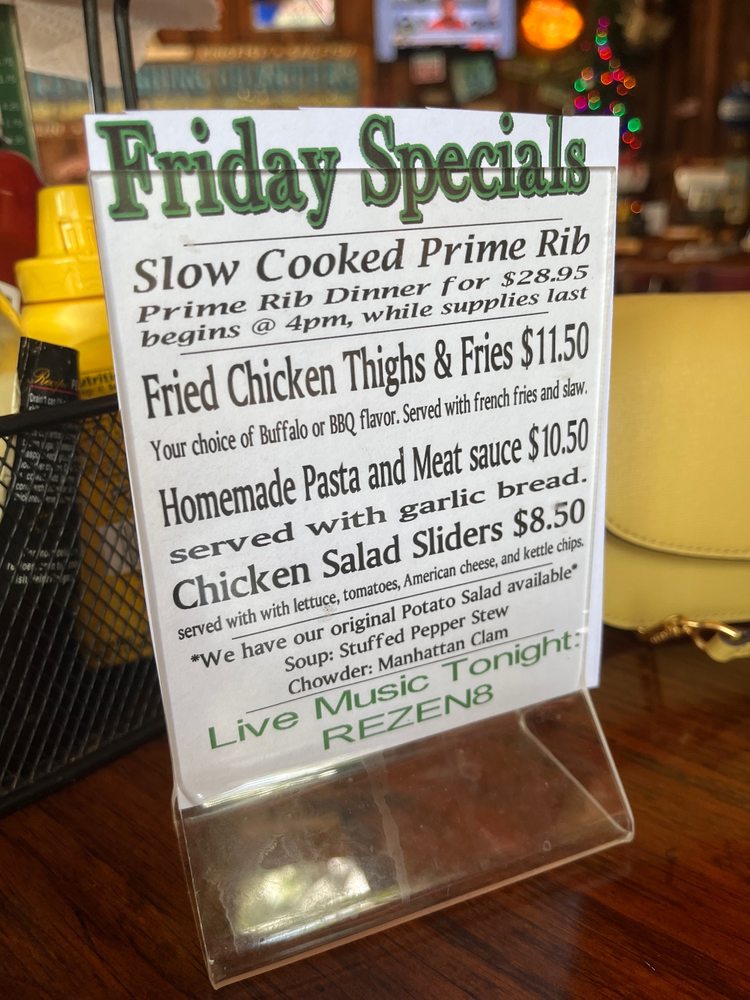 Friday Specials
Slow Cooked Prime Rib
Prime Rib Dinner for $28.95
begins @ 4pm, while supplies last
Fried Chicken Thighs & Fries $11.50
Your choice of Buffalo or BBQ flavor. Served with french fries and slaw.
Homemade Pasta and Meat sauce $10.50
served with garlic bread.
Chicken Salad Sliders $8.50
served with with lettuce, tomatoes, American cheese, and kettle chips.
*We have our original Potato Salad available*
Soup: Stuffed Pepper Stew
Chowder: Manhattan Clam
Live Music Tonight:
REZEN8